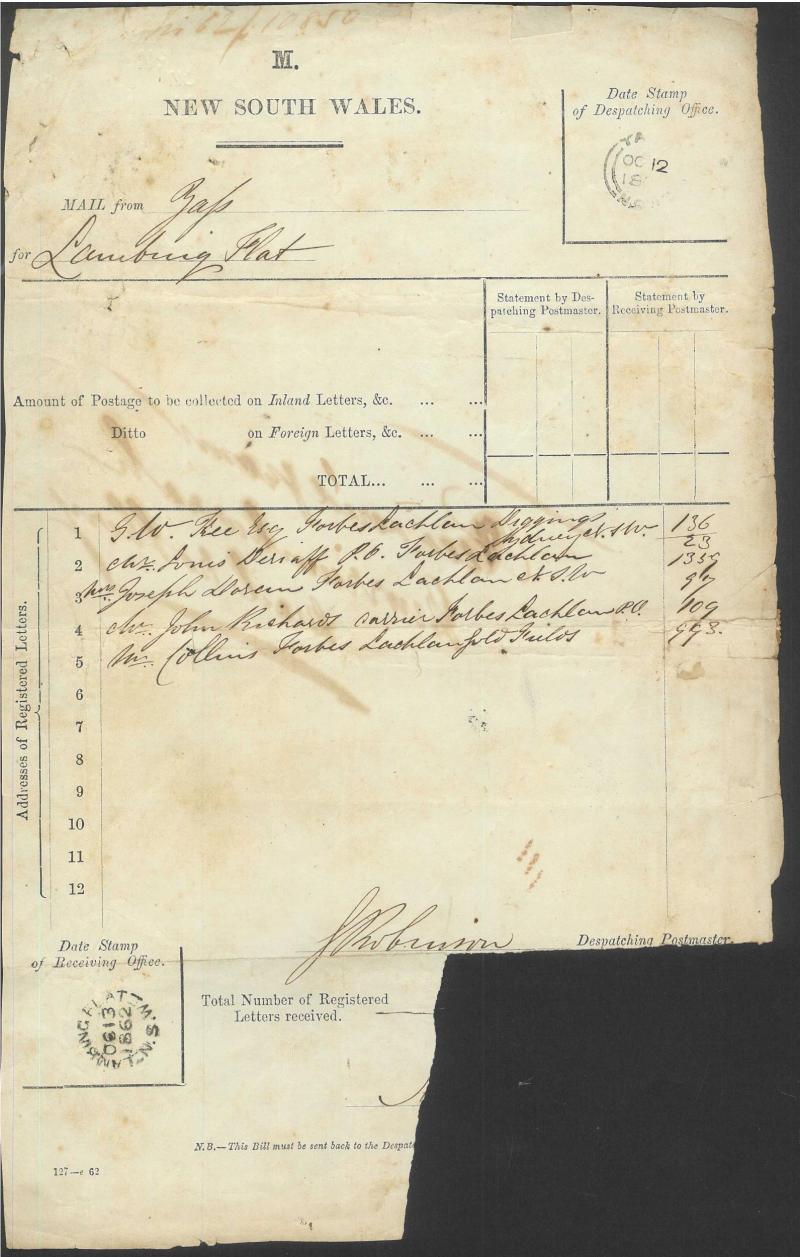 M.
NEW SOUTH WALES.
Date Stamp
of Despatching Office.
YA
OC 12
18
MAIL from Yass
for Lambing Flat
Statement by Des-
patching Postmaster.
Statement by
Receiving Postmaster.
Amount of Postage to be collected on Inland Letters, &c. ... ...
Ditto on Foreign Letters, &c. ... ...
TOTAL... ... ...
Addresses of Registered Letters.
1 G. W. Kee Esq Forbes Lachlan Diggings 136
Sydney N.S.W. 23
2 Mr. Louis P.O. Forbes Lachlan 1339
3 Mr. Joseph Doreen Forbes Lachlan N.S.W
4 Mr. John Richards carrier Forbes Lachlan P.O. 109
5 Mr. Collins Forbes Lachlan Gold Fields 993.
6
7
8
9
10
11
12
J Robinson Despatching Postmaster.
Date Stamp
of Receiving Office.
LAMBING FLAT
OC 13
1862
N.S.W
Total Number of Registered
Letters received.
N.B.—This Bill must be sent back to the Despat
127—e 62